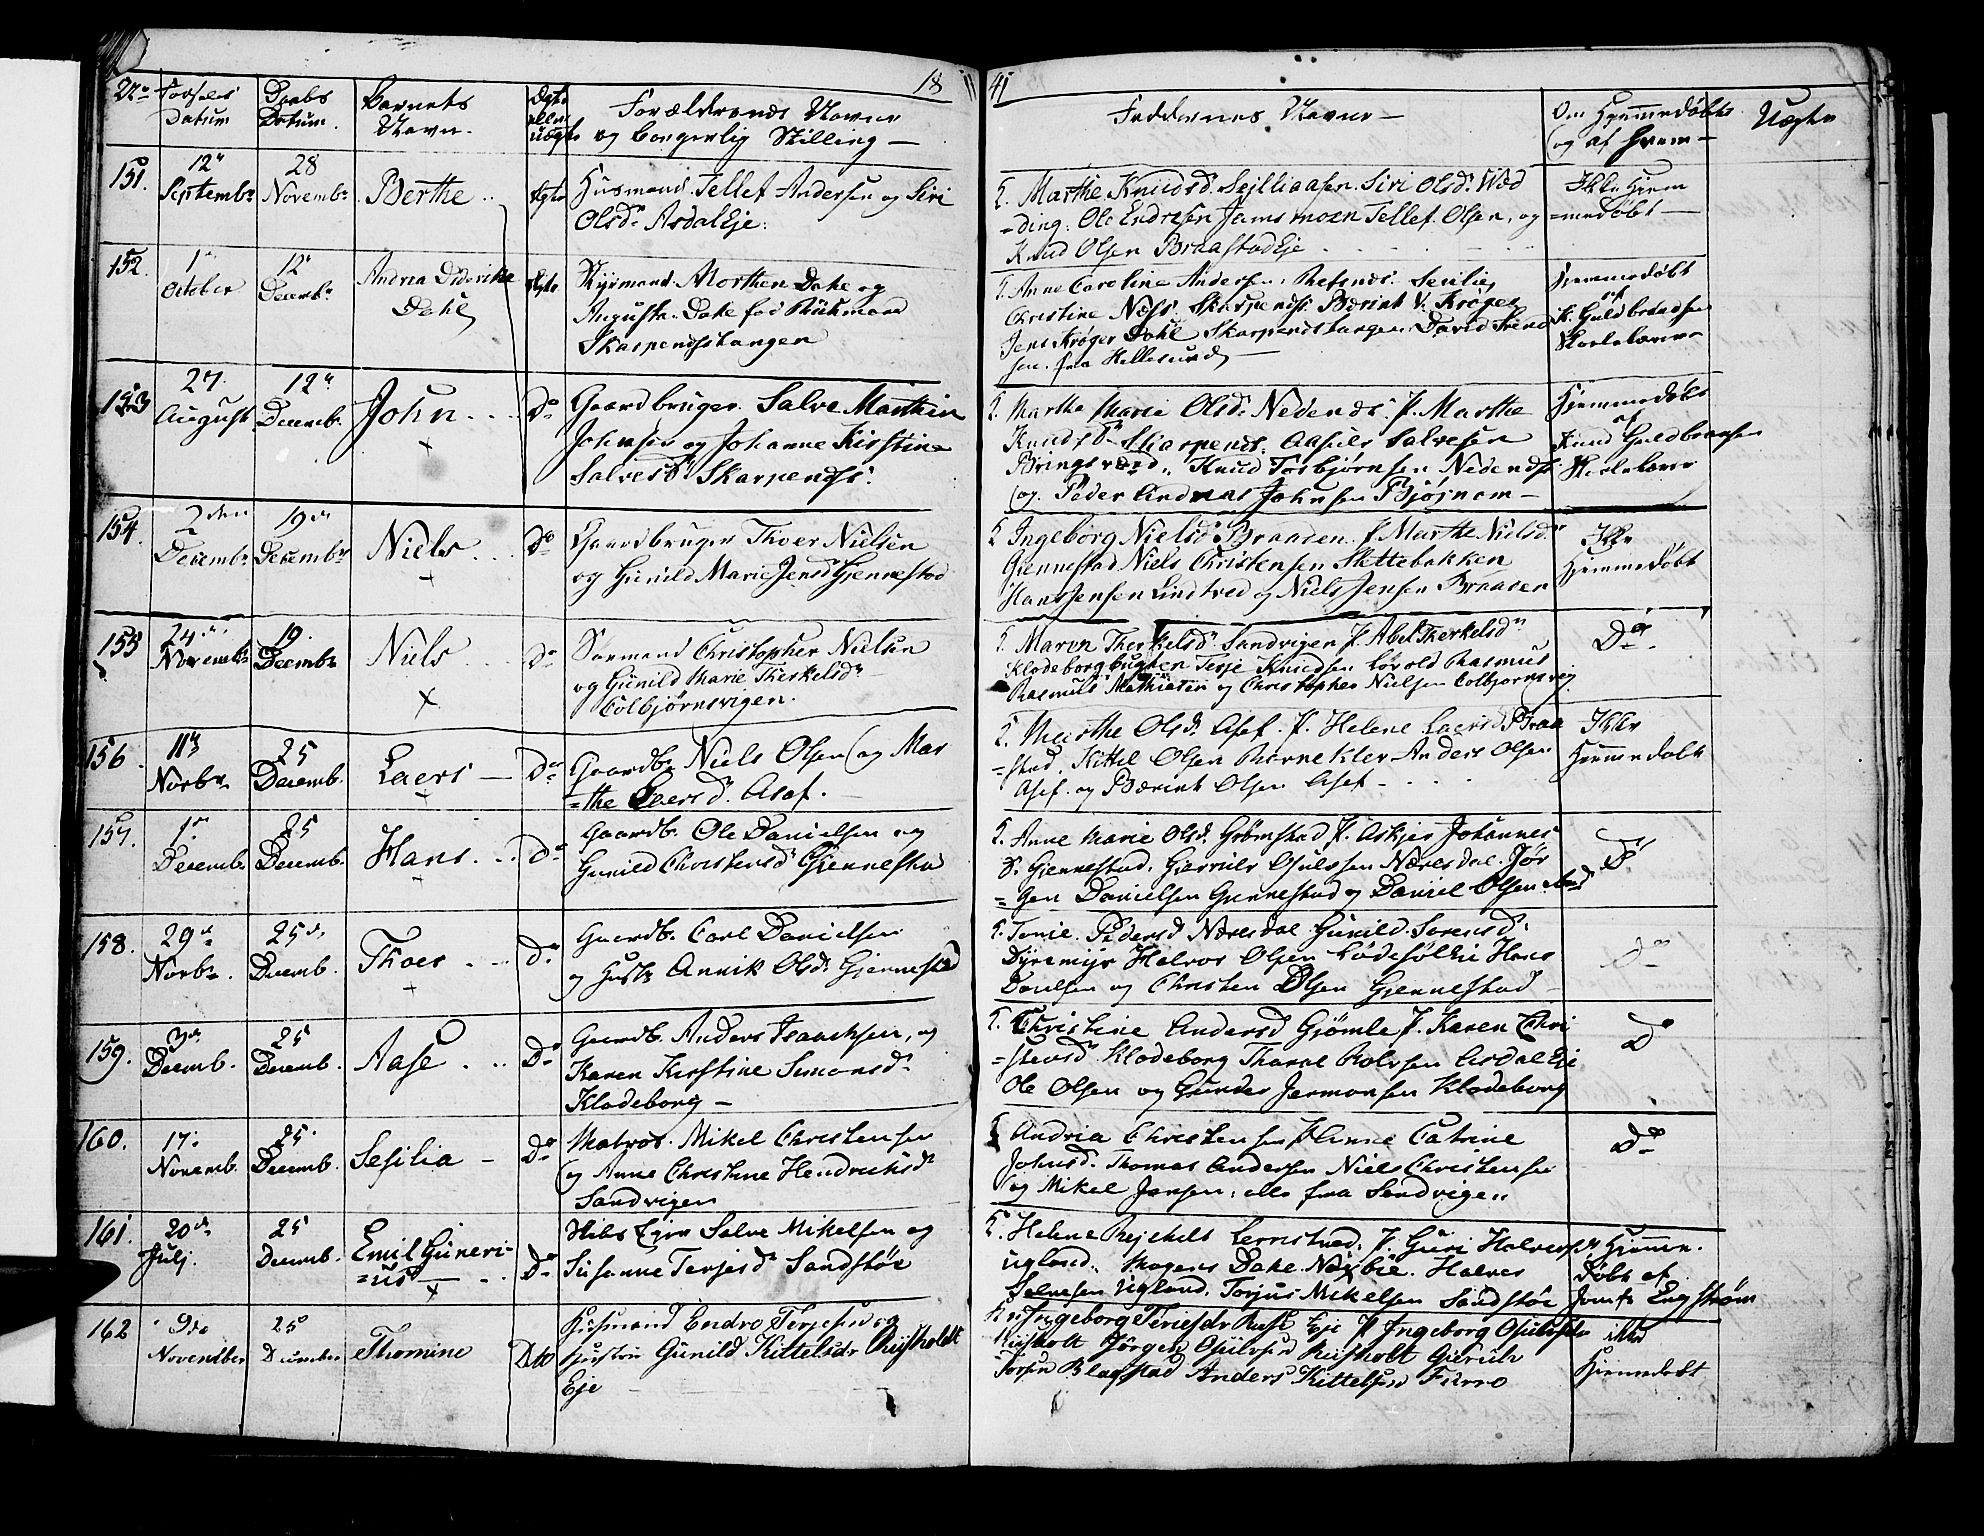 18 41
No Fødsels Datum
Daabs Datum.
Barnets Navn.
Ægte eller uægte
Forældrenes Navne og borgerlig Stilling —
Faddernes Navne —
Om Hjemmedøbt og af hvem —
Uægte
151.
12te Septembr
28 Novembr
Berthe
Ægte
Husmand Tellef Andersen og Siri
Olsdr Asdal Eje.
Marthe Knudsd. Siri Olsdr Wed
=ding. Ole Endresen Tellef Olsen, og
Knud Olsen Braastad Eje
Ikke Hjem
=medøbt —
152.
1te October
12te Decembr
Andrea Diderikke
Dahl
Ægte
Styrmand Morthen Dahl og
Augusta Dahl fød
Skarpendstangen
Anne Caroline Andersen. Sesilie
Christine Næss. Skarpends. Berint V. Krøger
Jens Krøger Dahl Skarpendstangen David Svend
sen fra Hellesund
Hjemmedøbt
af
K. Guldbrandsen
Skolelærer
153
27. August
12te Decemb.
John
Do
Gaardbruger Salve Marthin
Johnsen og Johanne Kirstine
Salvesdr Skarpends.
Marthe Marie Olsdr Nedends. F. Marthe
Knudsdr Skarpends. Salvesen
Bringsværd. Knud Torbjørnsen Nedends
og Peder Andreas Johnsen Bjørnem —
Hjemmedøbt
af
Knud Guldbransen
Skolelærer
154.
2den Decembr
19de Decembr
Niels
Do
Gaardbruger Thoer Nielsen
og Gunild Marie Jensd Gjennestad
Ingeborg Nielsd Braaden. F. Marthe Nielsdr
Gjennestad Niels Christensen Slettebakken
Hans Jensen Lindtved og Niels Jensen Braaden
Ikke
Hjemmedøbt
155
24de Novembr
19. Decembr
Niels
Do
Sømand Christopher Nielsen
og Gunild Marie Therkelsdr
Colbjørnsvigen.
Maren Therkelsdr Sandvigen F. Abel Therkelsdr
Klodeborgbugten Terje Knudsen Løvold Rasmus
Rasmus Mathisen og Christopher Nielsen Colbjørnsvig
Do
156.
11te Novbr
25 Decemb.
Laers —
Do
Gaardb. Niels Olsen og Mar
=the Laersdr. Asef.
Marthe Olsdr Asef. F. Helene Laersd. Braa
=stad. Kittel Olsen Barnekler Anders Olsen
Asef. og Berint Olsen Asef
Ikke
Hjemmedøbt
157.
1te Decemb.
25 Decemb.
Hans
Do
Gaardb. Ole Danielsen og
Gunild Christensdr Gjennestad
Anne Marie Olsdr. Grømstad F. Askjer Johannes
D. Gjennestad. Gjeruls Osulssen Næresdal. Jør
=gen Danielsen Gjennestad og Daniel Olsen
Do
158.
29de Novbr.
25de Decemb.
Thoer
Do
Gaardb. Carl Danielsen
og Hustr Annik Olsdr Gjennestad
Tonie Pedersd Næresdal Gunild Sorensdr.
Dyremyr Halvor Olsen Hans
Danielsen og Christen Olsen Gjennestad
Do
159.
3de Decemb.
25 Decemb.
Aase
Do
Gaardb. Anders Isaachsen, og
Karen Kirstine Simonsdr
Klodeborg —
Christine Andersd Gjømle F. Karen Chri
=stensdr Klodeborg Tharal Rolvsen Asdal Eje
Ole Olsen og Gunder Jermonsen Klodeborg
Do
160.
17de Novemb.
25. Decemb.
Sesilia —
Do
Matros. Mikel Christensen
og Anne Christine Hendriksdr
Sandvigen
Andria Christensen F. Anne Catrine
Johnsd. Thomas Andersen Niels Christensen
og Mikel Jensen, alle fra Sandvigen
Do
161.
20de Julj.
25 Decemb.
Emil Guneri-
=us —
Do
Salve Mikelsen og
Susanne Terjesdr Sandstøe
Helene F. Guri Halvorsdr
Ugland. Mogens Dahl Næsbie. Halvor
Salvesen Ugland. Torjus Mikelsen Sandstøe
Hjemme-
døbt af
Jomfr Engstrøm
162
9de November
25 December
Thomine
Do
Husmand Endre Terjesen og
Hustru Gunild Kittelsdr Rusholdt
Eje —
Ingeborg Teriesdr Eje F. Ingeborg Osulsdr
Rusholt Jørgen Osulsen Rusholt Gjerulv
Torsen Blagstad Anders Kittelsen Furre
ikke
Hjemmedøbt